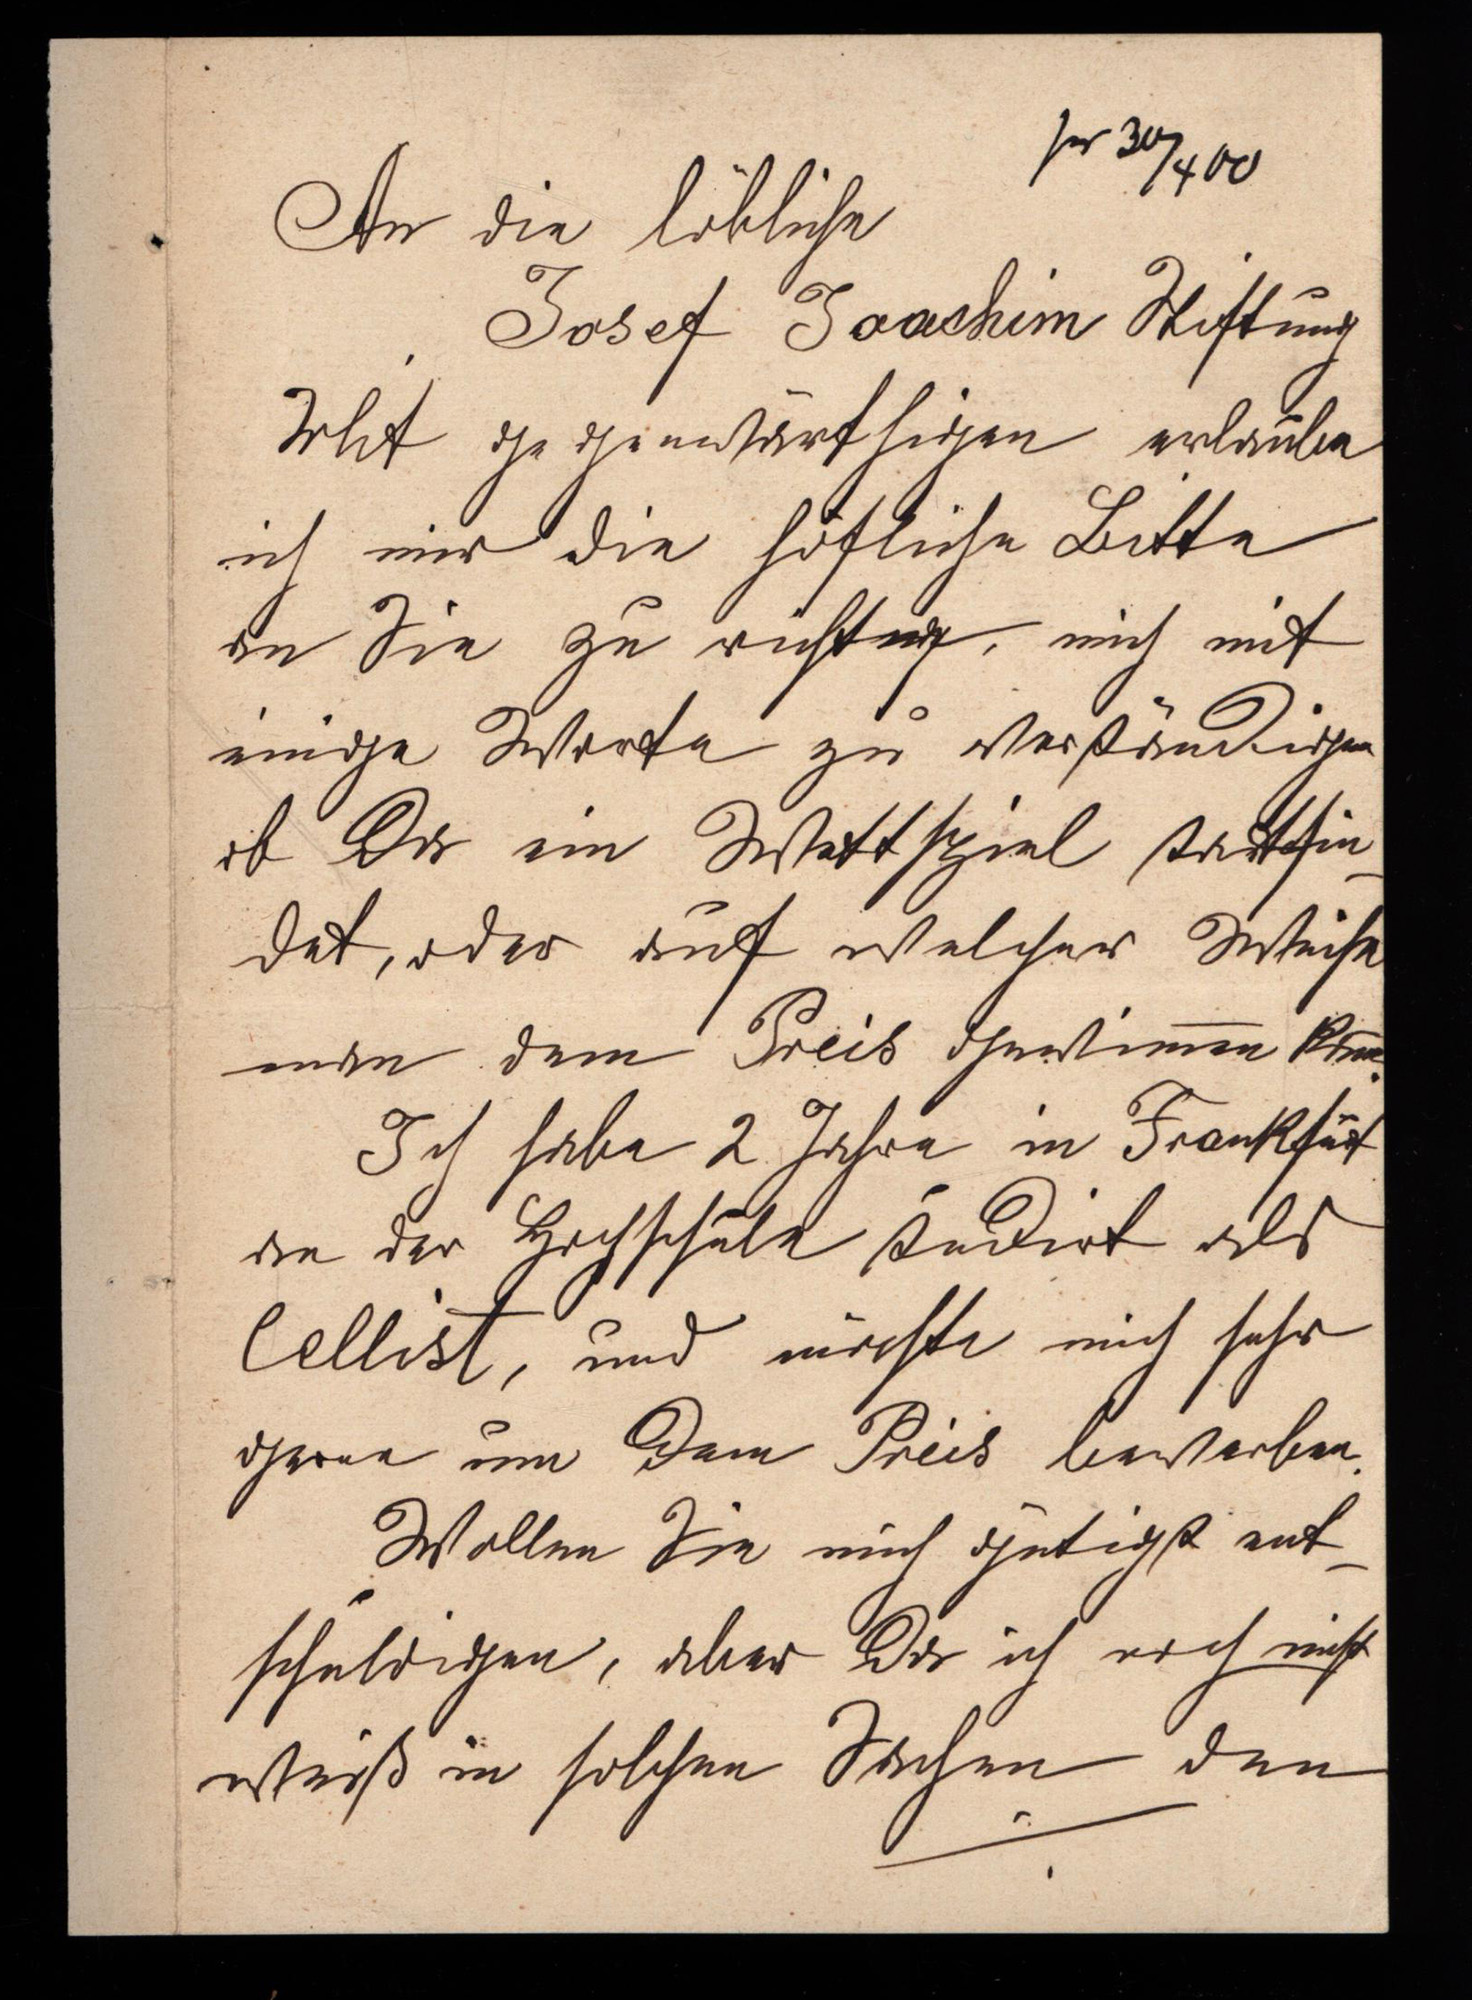 30/4 00
An die löbliche
Josef Joachim Stiftung
Mit gegenwärthigen erlaube
ich mir die höfliche Bitte
an Sie zu richten, mich mit
einige Worte zu verständigen
ob da ein Wettspiel stattfin-
det, oder auf welcher Weise
man dem Preis gewin̄en kann.
Ich habe 2 Jahre in Frankfurt
an der Hochschule studirt als
Cellist, und möchte mich sehr
gerne um dem Preis bewerben.
Wollen Sie mich gütigst ent-
schuldigen, aber da ich noch nicht
weiß in solchen Sachen den